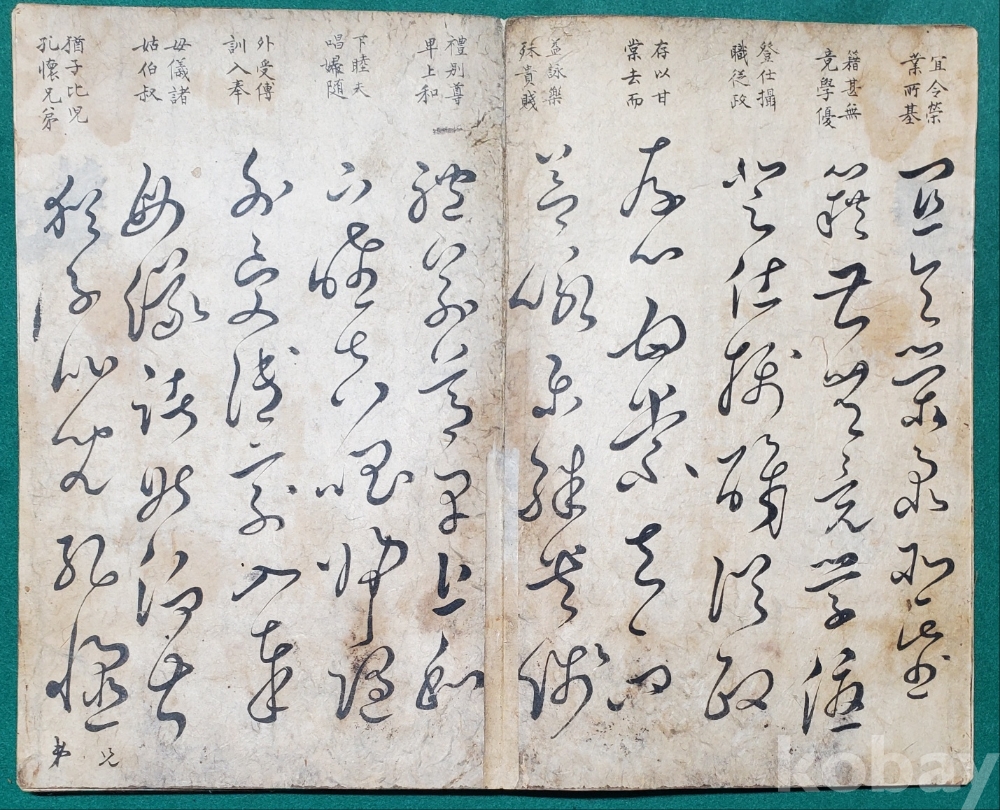 宜令榮
業所基
宜令榮業所基
籍甚無
竟學優
籍甚無竟學優
登仕攝
職從政
登仕攝職從政
存以甘
棠去而
存以甘棠去而
益詠樂
殊貴賤
益詠樂殊貴賤
禮別尊
早上和
禮別尊卑上和
下睦夫
唱婦隨
下睦夫唱婦隨
外受傅
訓入奉
外受傅訓入奉
母儀諸
姑伯叔
母儀諸姑伯叔
猶子比児
孔懷兄弟
猶子比兒孔懷
兄弟
kobay